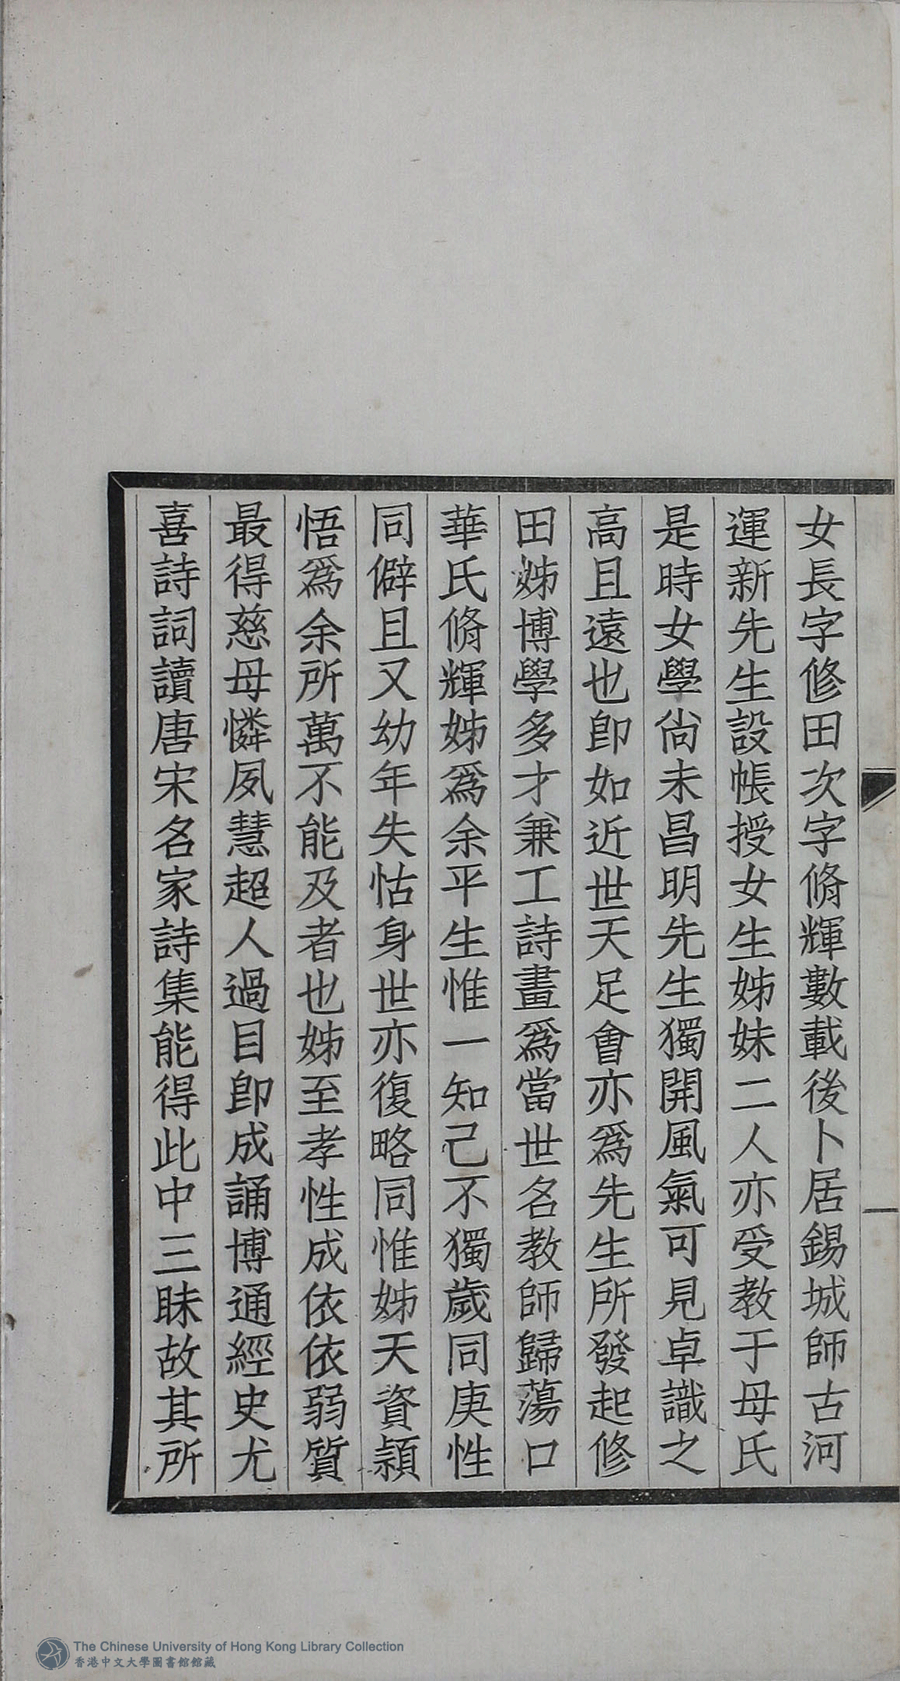 女長字修田次字脩輝數載後卜居錫城師古河
運新先生設帳授女生姊妹二人亦受教于母氏
是時女學尙未昌明先生獨開風氣可見卓識之
高且遠也卽如近世天足會亦爲先生所發起修
田姊博學多才兼工詩畫爲當世名教師歸蕩口
華氏脩輝姊爲余平生惟一知己不獨歲同庚性
同僻且又幼年失怙身世亦復略同惟姊天資穎
悟爲余所萬不能及者也姊至孝性成依依弱質
最得慈母憐夙慧超人過目卽成誦博通經史尤
喜詩詞讀唐宋名家詩集能得此中三昧故其所
The Chinese University of Hong Kong Library Collection
香港中文大學圖書館館藏